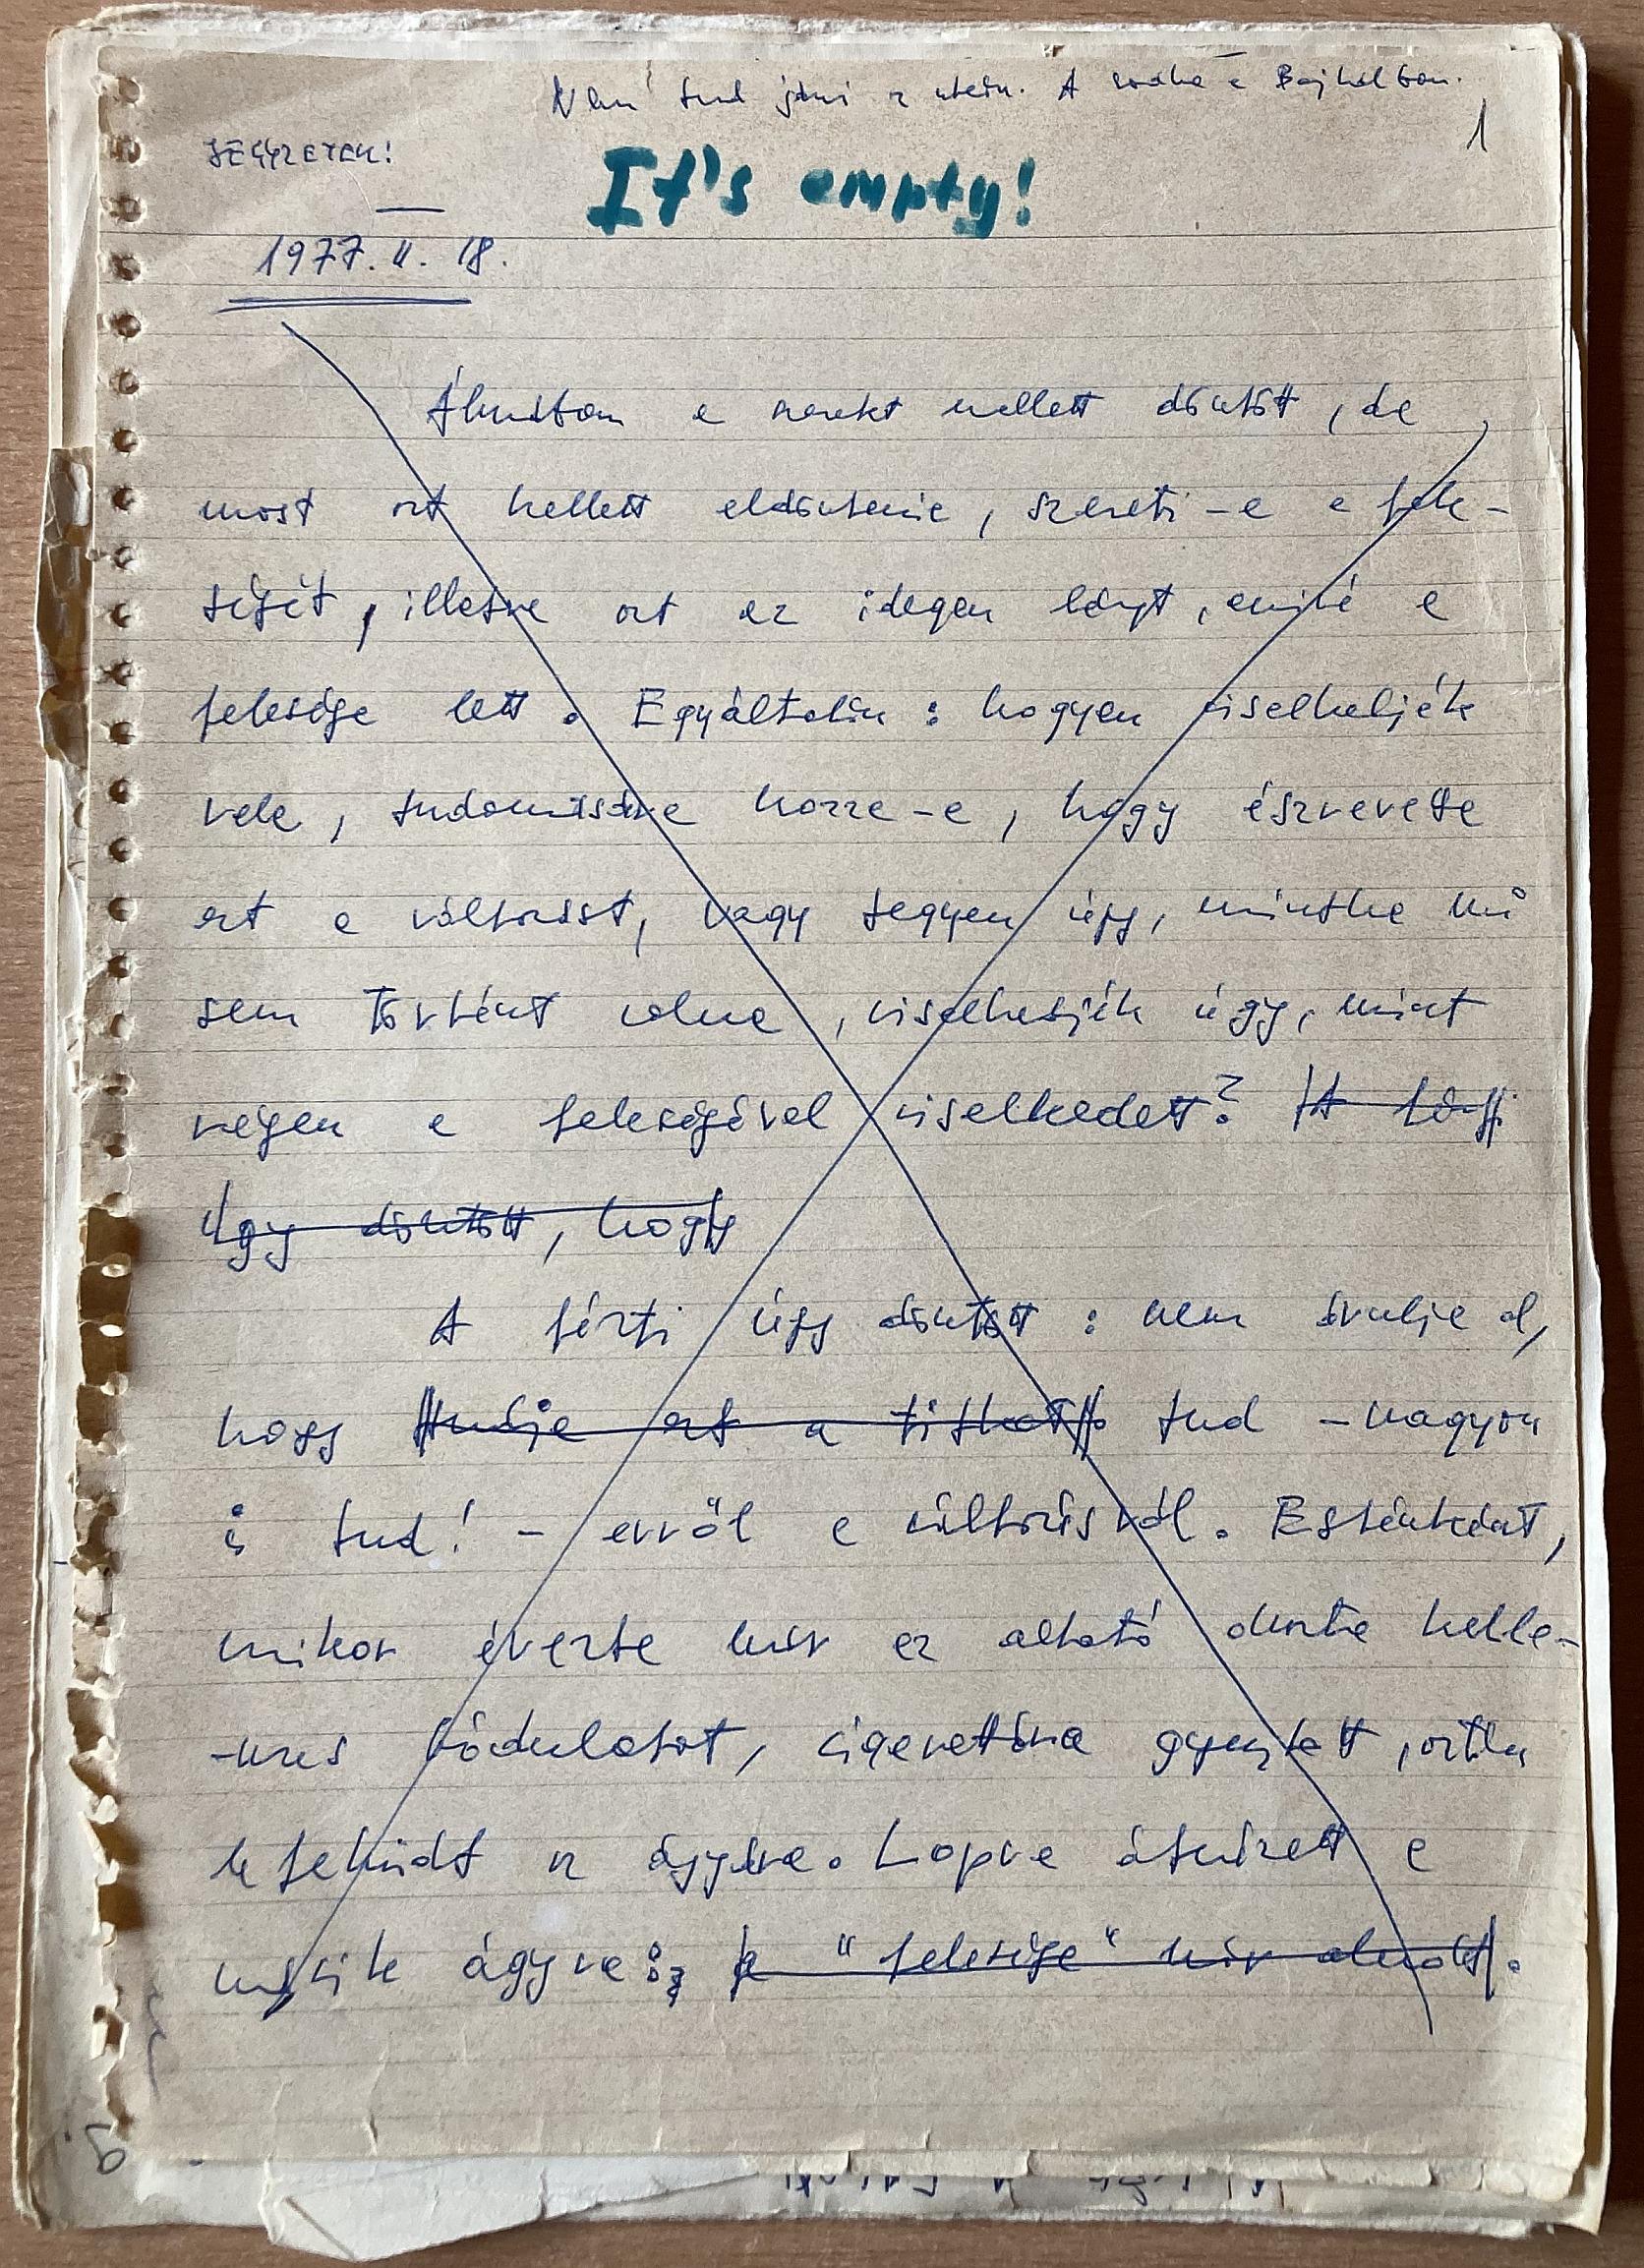 Nem tud járni az utcán. A
1
It's empty!
1977. II. 18.
Álmában a mellett döntött, de
most azt kellett eldöntenie, szereti-e a fele-
ségét, illetve azt az idegen lányt, amivé a
felesége lett. Egyáltalán: hogyan viselkedjék
vele, tudomására hozza-e, hogy észrevette
ezt a változást, vagy tegyen úgy, mintha mi
sem történt volna, viselkedjék úgy, mint
régen a feleségével viselkedett? A férfi
Úgy döntött, hogy
A férfi úgy döntött: nem árulja el,
hogy tudja ezt a titkot tud - nagyon
is tud! - erről a változásról. Esténként,
mikor érezte már az altató okozta kelle-
mes kódulatot, cigarettára gyujtott, aztán
lefeküdt az ágyára. Lopva átnézett a
másik ágyra: a "felesége" már aludt.